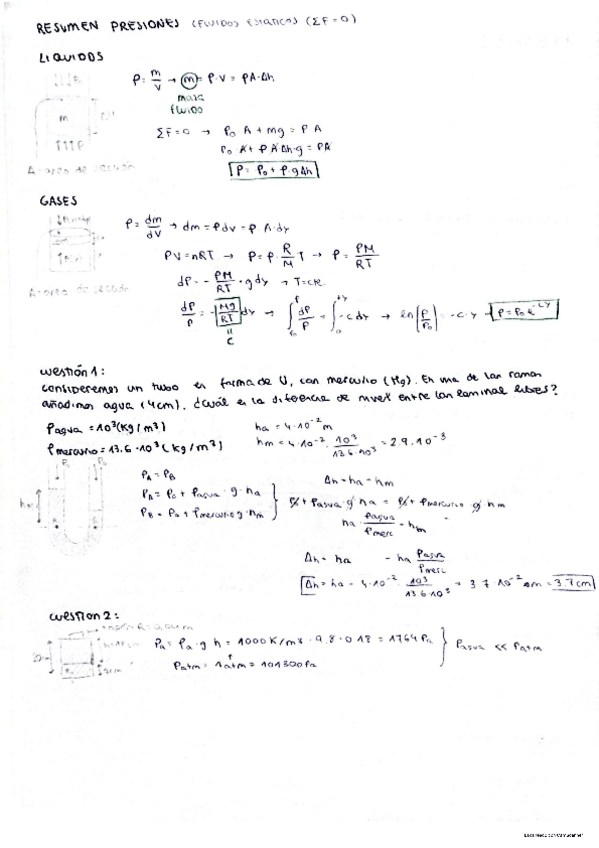 RESUMEN PRESIONES (FLUIDOS ESTATICOS (ΣF=0)
LIQUIDOS
ρ = m/V → m = ρ·V = ρA·Δh
masa
fluido
m
ΣF=0 → P₀·A + mg = P A
P₀·A + ρAΔh·g = PA
P = P₀ + ρ·gΔh
A=area de sección
GASES
ρ = dm/dV → dm = ρdV = ρ A·dy
PV = nRT → P = ρ·R/M T → ρ = PM/RT
dP = - PM/RT · g dy → T=cte
A=area de sección
dP/P = - Mg/RT dy → ∫ dP/P = ∫ -c dy → ln(P/P₀) = -c·y → P = P₀ e^-cy
C
cuestión 1:
consideremos un tubo en forma de U, con mercurio (Hg). En una de las ramas
añadimos agua (4cm). ¿Cuál es la diferencia de nivel entre las laminas libres?
ρagua = 10³ (kg/m³)
ha = 4·10⁻² m
ρmercurio = 13.6·10³ (kg/m³)
hm = 4·10⁻² · 10³/13.6·10³ = 2.9·10⁻³
PA = PB
Δh = ha - hm
PA = P₀ + ρagua·g·ha
P₀ + ρagua·g·ha = P₀ + ρmercurio·g·hm
PB = P₀ + ρmercurio·g·hm
ha · ρagua/ρmerc = hm
Δh = ha - ha ρagua/ρmerc
Δh = ha - 4·10⁻² · 10³/13.6·10³ = 3.7·10⁻² m = 3.7 cm
cuestión 2:
Pa = ρa·g h = 1000 K/m³ · 9.8 · 0.18 = 1764 Pa
Pagua << Patm
Patm = 1 atm = 101300 Pa